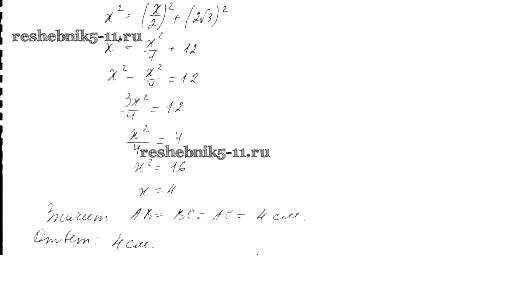 x² = (x/2)² + (2√3)²
reshebnik5-11.ru
x² = x²/4 + 12
x² - x²/4 = 12
3x²/4 = 12
x²/4 = 4
reshebnik5-11.ru
x² = 16
x = 4
Значит AB = BC = AC = 4 см.
Ответ: 4 см.